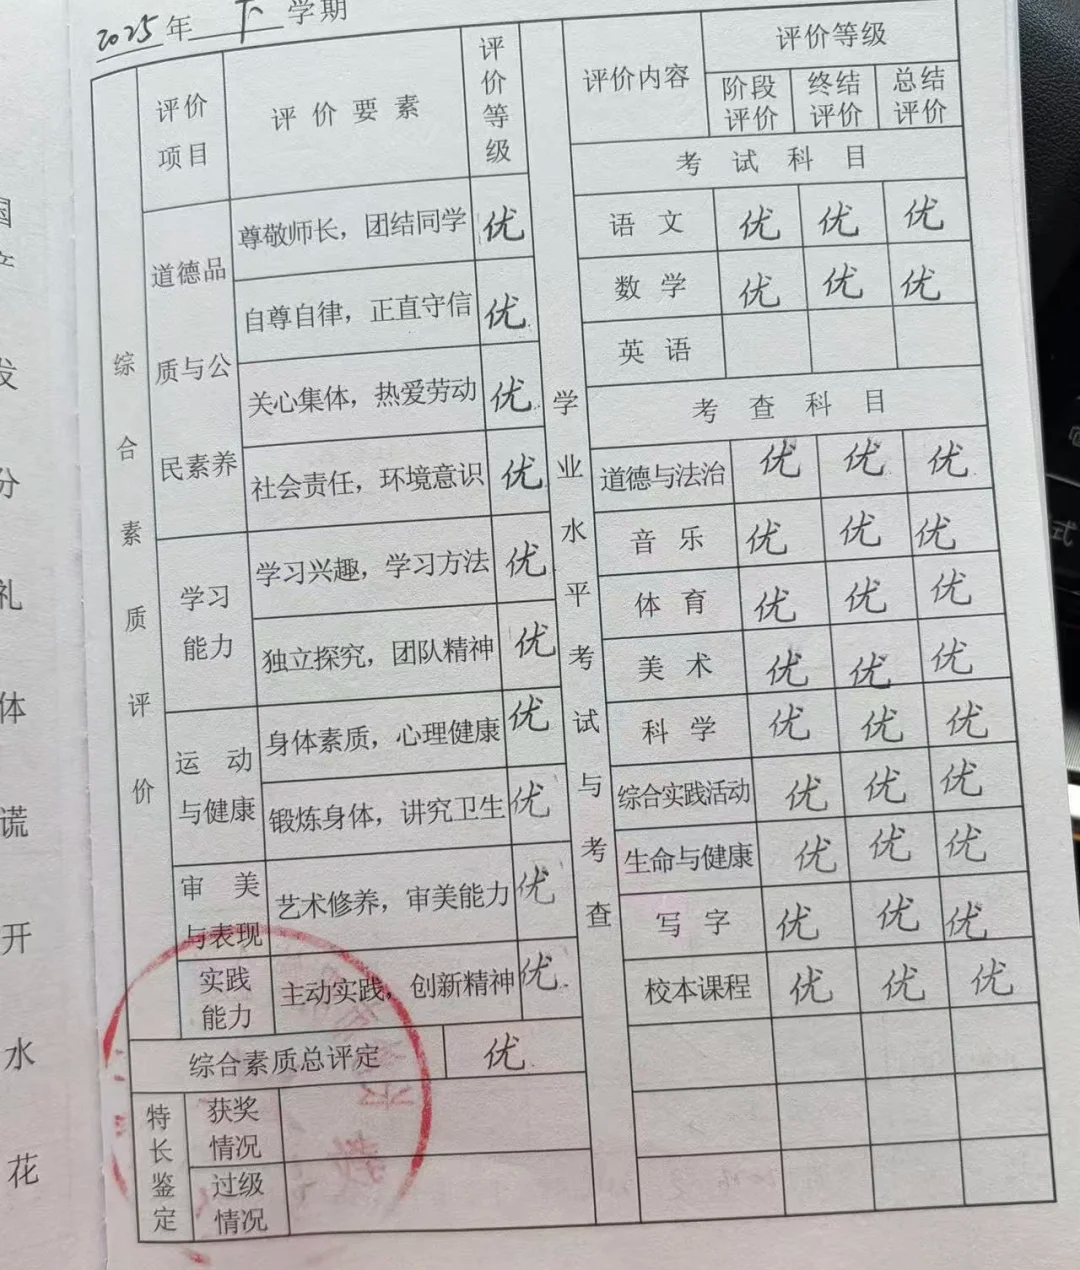 2025年 下 学期
综合素质评价
评价项目 评价要素 评价等级
道德品质与公民素养
尊敬师长，团结同学 优
自尊自律，正直守信 优
关心集体，热爱劳动 优
社会责任，环境意识 优
学习能力
学习兴趣，学习方法 优
独立探究，团队精神 优
运动与健康
身体素质，心理健康 优
锻炼身体，讲究卫生 优
审美与表现
艺术修养，审美能力 优
实践能力
主动实践，创新精神 优
综合素质总评定 优
特长鉴定
获奖情况
过级情况
学业水平考试与考查
评价内容 评价等级
阶段评价 终结评价 总结评价
考试科目
语文 优 优 优
数学 优 优 优
英语
考查科目
道德与法治 优 优 优
音乐 优 优 优
体育 优 优 优
美术 优 优 优
科学 优 优 优
综合实践活动 优 优 优
生命与健康 优 优 优
写字 优 优 优
校本课程 优 优 优
发
分
礼
体
谎
开
水
花